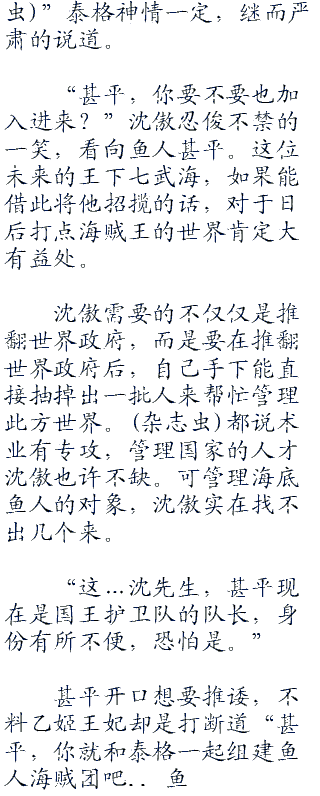 虫)”泰格神情一定，继而严
肃的说道。
“甚平，你要不要也加
入进来？”沈傲忍俊不禁的
一笑，看向鱼人甚平。这位
未来的王下七武海，如果能
借此将他招揽的话，对于日
后打点海贼王的世界肯定大
有益处。
沈傲需要的不仅仅是推
翻世界政府，而是要在推翻
世界政府后，自己手下能直
接抽掉出一批人来帮忙管理
此方世界。(杂志虫)都说术
业有专攻，管理国家的人才
沈傲也许不缺。可管理海底
鱼人的对象，沈傲实在找不
出几个来。
“这...沈先生，甚平现
在是国王护卫队的队长，身
份有所不便，恐怕是。”
甚平开口想要推诿，不
料乙姬王妃却是打断道“甚
平，你就和泰格一起组建鱼
人海贼团吧．．鱼